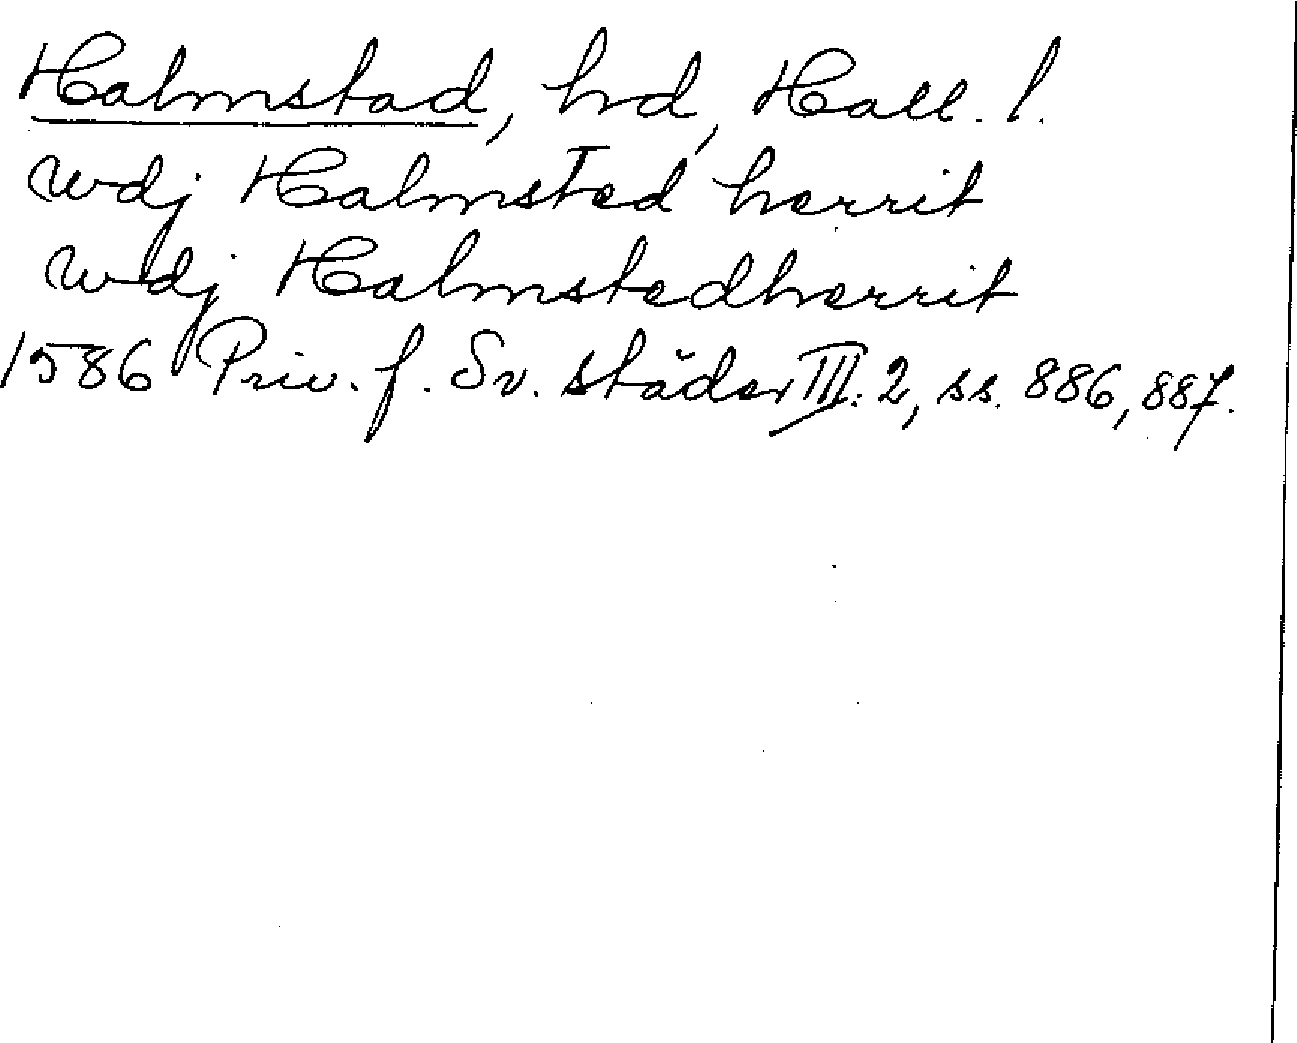 Halmstad, hd, Hall. l.
wdj Halmsted herrit
wdj Halmstedherrit
1586 Priv. f. Sv. städer III:2, ss. 886, 887.